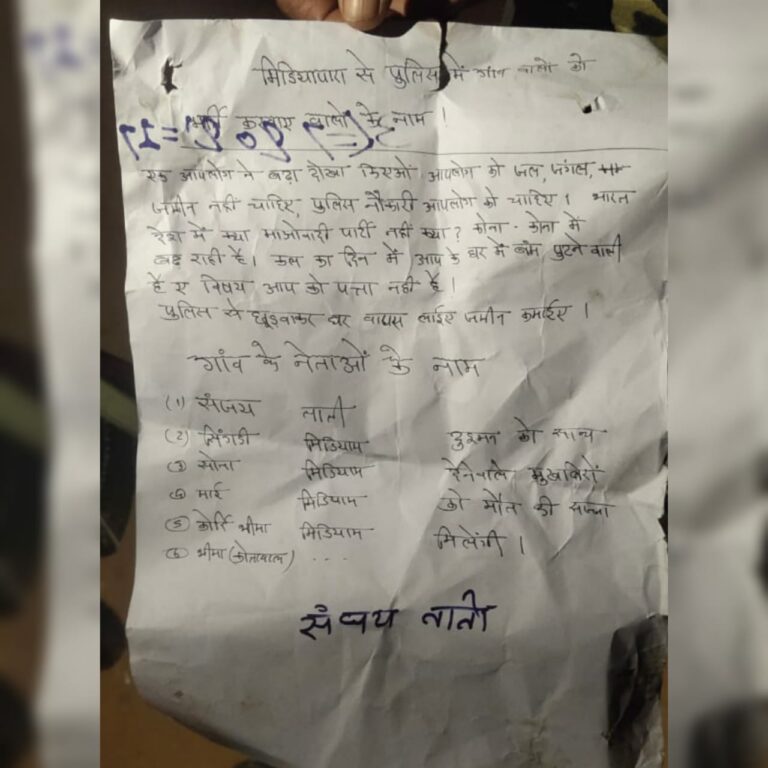 मिडियापारा से पुलिस में गांव वालों को
भर्ती करवाए वालो के नाम ।
एक आपलोग ने बढ़ा दोखा किएओं आपलोग को जल, जंगल,
जमीन नहीं चाहिए, पुलिस नौकरी आपलोग को चाहिए । भारत
देश में क्या माओवादी पार्टी नहीं क्या? कोना - कोना में
बढ़ राही है। कल का दिन में आप के घर में बॅम पुटने वाली
है ए विषय आप को पत्ता नहीं है ।
पुलिस से छुड़वाकर घर वापस लाईए जमीन कमाईए ।
गांव के नेताओं के नाम
(1) संजय ताती
(2) लिंगडी मिडियाम दुश्मन को साथ
(3) सोना मिडियाम देनेवाले मुखबिरों
(4) माई मिडियाम को मौत की सज्जा
(5) कोर्टि भीमा मिडियाम मिलेंगी ।
(6) भीमा (कोतवाल) . . . .
संजय ताती